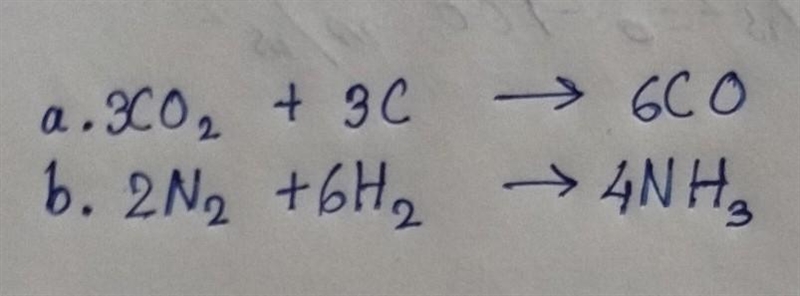 a. 3CO₂ + 3C → 6CO
b. 2N₂ + 6H₂ → 4NH₃